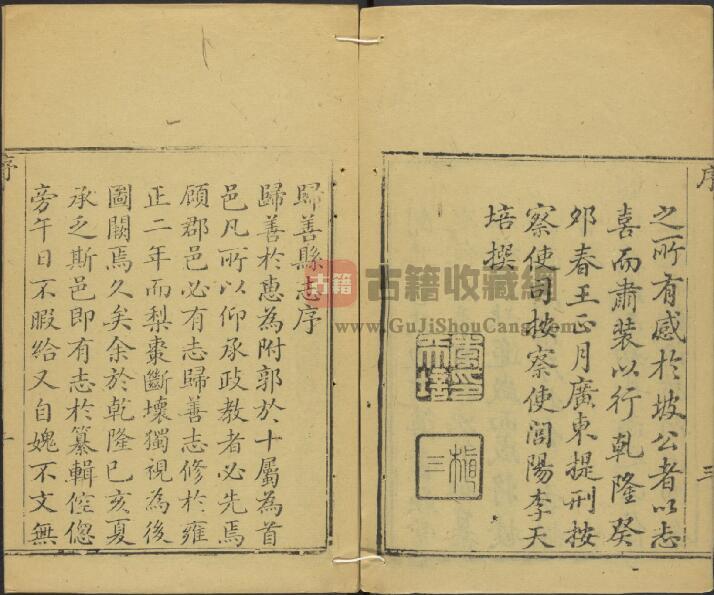 序
三
之所有感於坡公者以志
喜而肅装以行乾隆癸
夘春王正月廣東提刑按
察使司按察使閭陽李天
培撰
李印
天培
槙
三
歸善縣志序
歸善於惠為附郭於十屬為首
邑凡所以仰承政教者必先焉
顧郡邑必有志歸善志修於雍
正二年而梨棗斷壞獨視為後
圖闕焉久矣余於乾隆已亥夏
承乏斯邑即有志於纂輯倥偬
旁午日不暇給又自媿不文無
序
一
古籍
古籍收藏網
www.GuJiShouCang.com